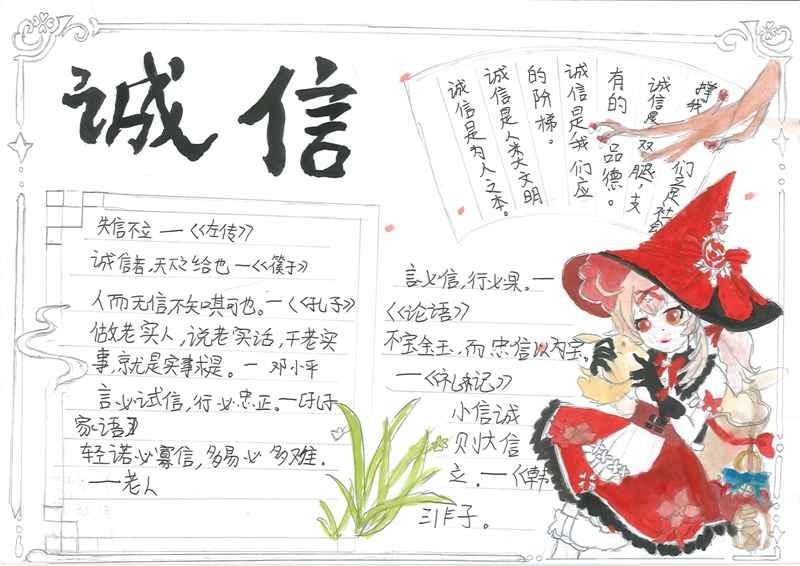 诚信
诚信是为人之本。
诚信是人类文明
的阶梯。
诚信是我们应
有的品德。
诚信是双腿,支
撑我们立足社会
失信不立 —《左传》
诚信者,天之给也—《子》
人而无信不知其可也。—《孔子》
做老实人,说老实话,干老实
事,就是实事求是。— 邓小平
言必诚信,行必忠正。—孔子
家语
轻诺必寡信,多易必多难.
——老人
言必信,行必果。—
《论语》
不宝金玉,而忠信以为宝。
—《礼记》
小信诚
则大信
立.—《韩
非子。